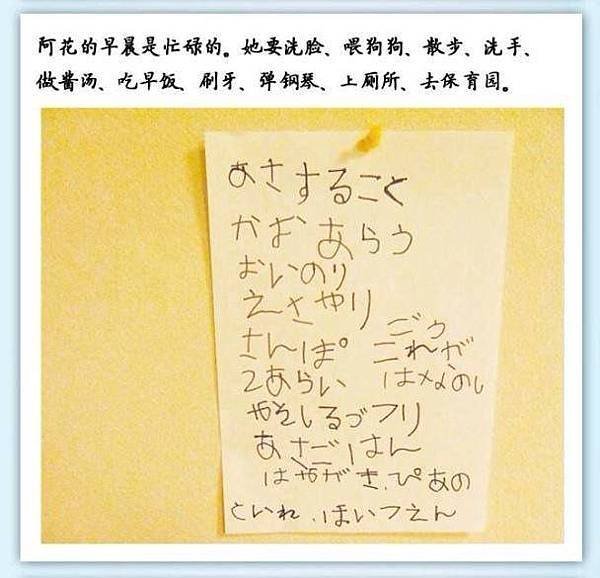 阿花的早晨是忙碌的。她要洗脸、喂狗狗、散步、洗手、
做酱汤、吃早饭、刷牙、弹钢琴、上厕所、去保育园。
あさすること
かおあらう
おいのり
えさやり
さんぽ
2あらい
ごう
これが
はなのし
やそしるづフリ
あさごはん
はやがき.ぴあの
といれ.ほいつえん